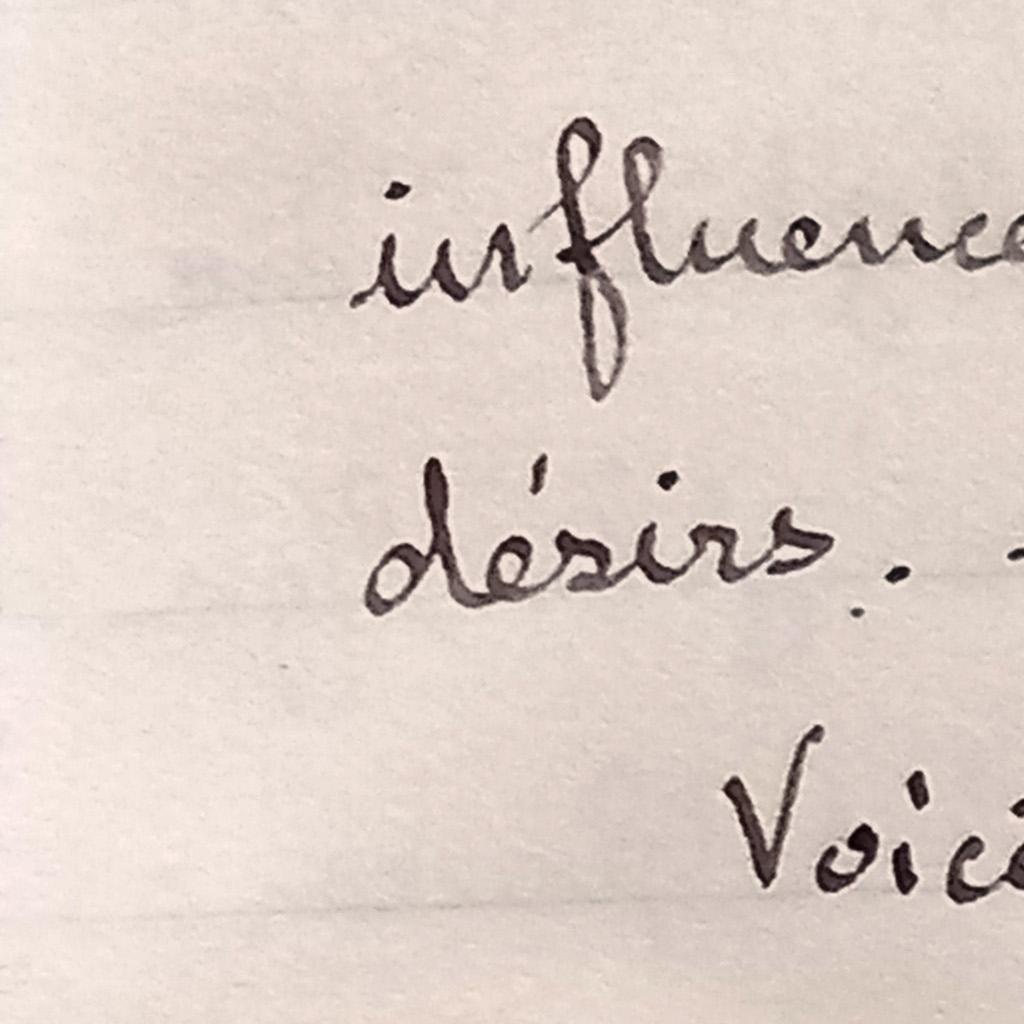 influence
désirs. -
Voici